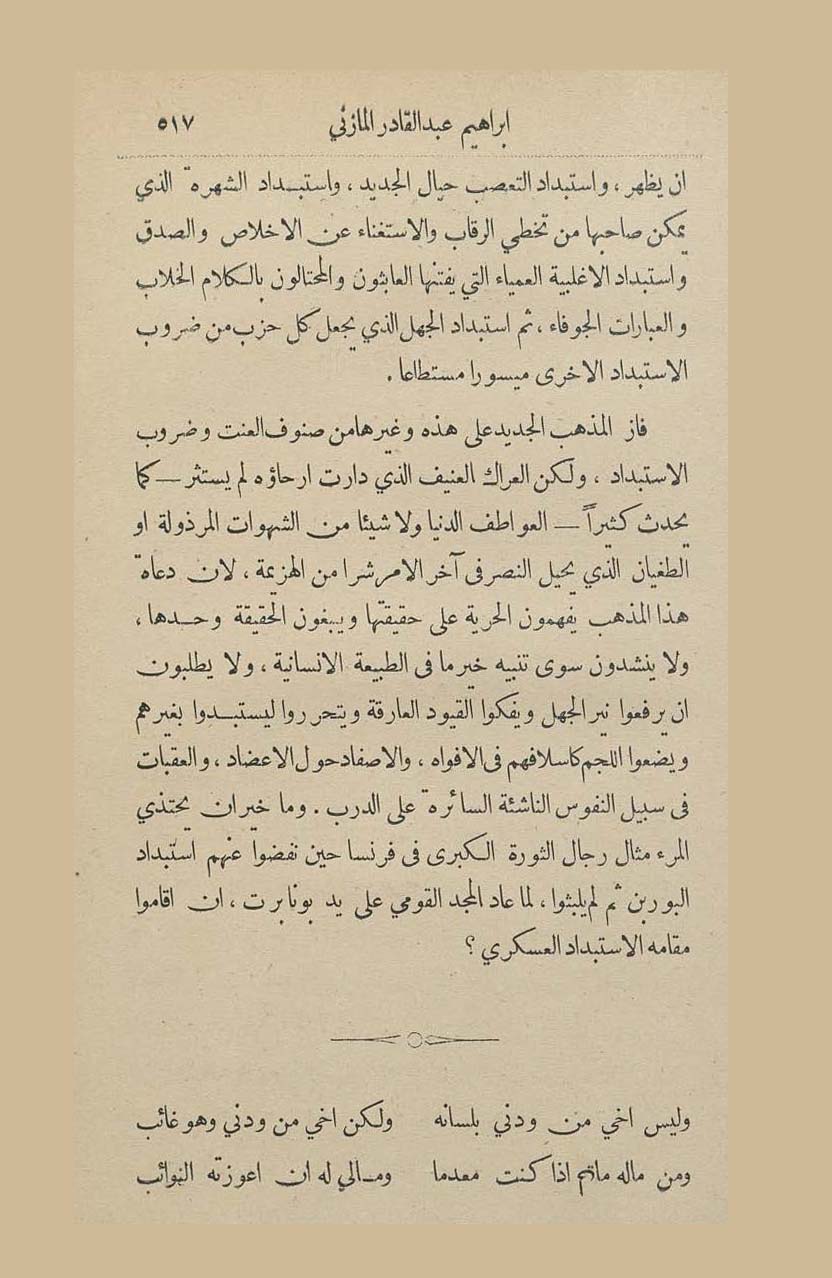 ابراهيم عبدالقادر المازني ٥١٧
ان يظهر ، واستبداد التعصب حيال الجديد ، واستبداد الشهرة الذي
يمكن صاحبها من تخطي الرقاب والاستغناء عن الاخلاص والصدق
واستبداد الاغلبية العمياء التي يفتنها العابثون والمحتالون بالكلام الخلاب
والعبارات الجوفاء ، ثم استبداد الجهل الذي يجعل كل حزب من ضروب
الاستبداد الاخرى ميسورا مستطاعا .
فاز المذهب الجديد على هذه وغيرها من صنوف العنت وضروب
الاستبداد ، ولكن العراك العنيف الذي دارت ارحاؤه لم يستثر — كما
يحدث كثيراً — العواطف الدنيا ولا شيئا من الشهوات المرذولة او
الطغيان الذي يحيل النصر فى آخر الامر شرا من الهزيمة ، لان دعاة
هذا المذهب يفهمون الحرية على حقيقتها ويبغون الحقيقة وحدها ،
ولا ينشدون سوى تنبيه خير ما فى الطبيعة الانسانية ، ولا يطلبون
ان يرفعوا نير الجهل ويفكوا القيود العارقة ويتحرروا ليستبدوا بغيرهم
ويضعوا اللجم كاسلافهم فى الافواه ، والاصفاد حول الاعضاد ، والعقبات
فى سبيل النفوس الناشئة السائرة على الدرب . وما خير ان يحتذي
المرء مثال رجال الثورة الكبرى فى فرنسا حين نفضوا عنهم استبداد
البوربن ثم لم يلبثوا ، لما عاد المجد القومي على يد بونابرت ، ان اقاموا
مقامه الاستبداد العسكري ؟
وليس اخي من ودني بلسانه ولكن اخي من ودني وهو غائب
ومن ماله مالي اذا كنت معدما ومالي له ان اعوزته النوائب